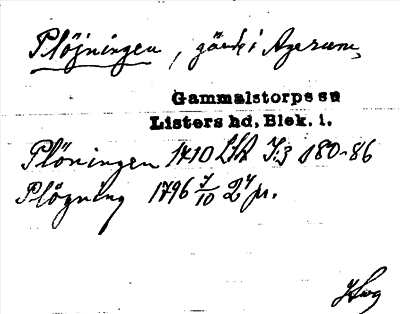 Plöjningen, gärde i Agerum,
Gammalstorps sn
Listers hd, Blek. l.
Plöningen 1710 LSA I:3 180-86
Plögning 1796 7/10 2 4 pr.